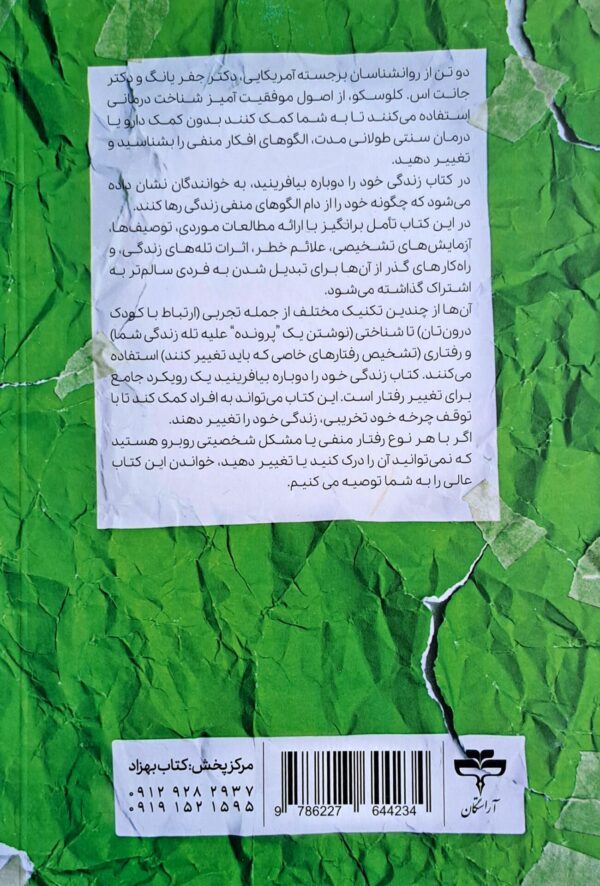 دو تن از روانشناسان برجسته آمریکایی، دکتر جفر یانگ و دکتر
جانت اس. کلوسکو، از اصول موفقیت آمیز شناخت درمانی
استفاده می‌کنند تا به شما کمک کنند بدون کمک دارو یا
درمان سنتی طولانی مدت، الگوهای افکار منفی را بشناسید و
تغییر دهید.
در کتاب زندگی خود را دوباره بیافرینید، به خوانندگان نشان داده
می‌شود که چگونه خود را از دام الگوهای منفی زندگی رها کنند.
در این کتاب تأمل برانگیز با ارائه مطالعات موردی، توصیف‌ها،
آزمایش‌های تشخیصی، علائم خطر، اثرات تله‌های زندگی، و
راه‌کارهای گذر از آن‌ها برای تبدیل شدن به فردی سالم‌تر به
اشتراک گذاشته می‌شود.
آن‌ها از چندین تکنیک مختلف از جمله تجربی (ارتباط با کودک
درون‌تان) تا شناختی (نوشتن یک "پرونده" علیه تله زندگی شما)
و رفتاری (تشخیص رفتارهای خاصی که باید تغییر کنند) استفاده
می‌کنند. کتاب زندگی خود را دوباره بیافرینید یک رویکرد جامع
برای تغییر رفتار است. این کتاب می‌تواند به افراد کمک کند تا با
توقف چرخه خود تخریبی، زندگی خود را تغییر دهند.
اگر با هر نوع رفتار منفی یا مشکل شخصیتی روبرو هستید
که نمی‌توانید آن را درک کنید یا تغییر دهید، خواندن این کتاب
عالی را به شما توصیه می کنیم.
مرکز پخش: کتاب بهزاد
۰۹۱۲ ۹۲۸ ۲۹۳۷
۰۹۱۹ ۱۵۲ ۱۵۹۵
9 786227 644234
آراستگان